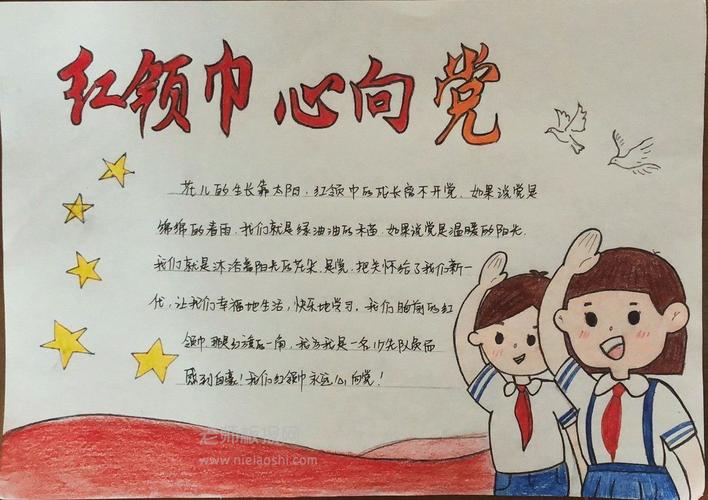 红领巾 心向党
花儿的生长靠太阳，红领巾的成长离不开党．如果说党是
绵绵的春雨，我们就是绿油油的禾苗．如果说党是温暖的阳光．
我们就是沐浴着阳光的花朵．是党，把关怀给了我们新一
代，让我们幸福地生活，快乐地学习．我们胸前的红
领巾．那是红旗的一角，我为我是一名少先队员而
感到自豪！我们红领巾永远心向党！
老师板报网
www.nielaoshi.com